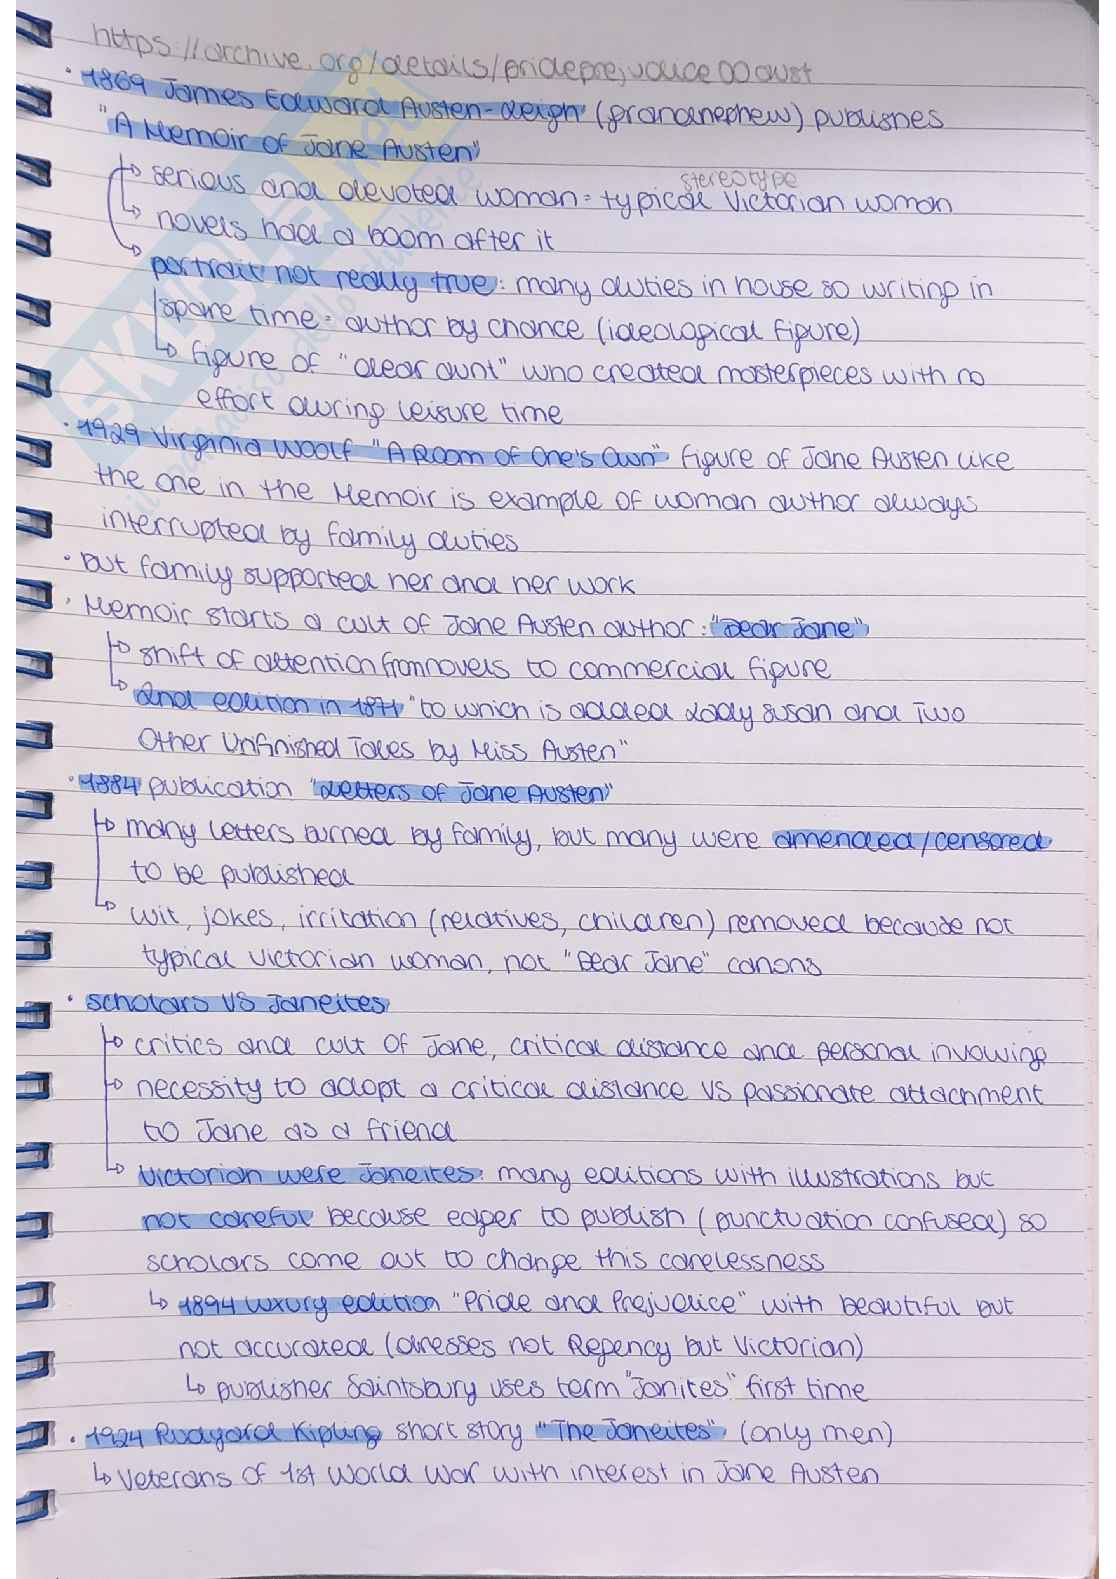 https://archive.org/details/prideprejudice00aust
· 1869 James Edward Austen-Leigh (grandnephew) publishes
"A Memoir of Jane Austen"
stereotype
↳ serious and devoted woman = typical Victorian woman
↳ novels had a boom after it
↳ portrait not really true: many duties in house so writing in
spare time = author by chance (ideological figure)
↳ figure of "dear aunt" who created masterpieces with no
effort during leisure time
· 1929 Virginia Woolf "A Room of One's Own" figure of Jane Austen like
the one in the Memoir is example of woman author always
interrupted by family duties
· but family supported her and her work
· Memoir starts a cult of Jane Austen author: "Dear Jane"
↳ shift of attention from novels to commercial figure
↳ 2nd edition in 1871 "to which is added Lady Susan and Two
Other Unfinished Tales by Miss Austen"
· 1884 publication "Letters of Jane Austen"
↳ many letters burned by family, but many were amended/censored
to be published
↳ wit, jokes, irritation (relatives, children) removed because not
typical Victorian woman, not "Dear Jane" canons
· Scholars VS Janeites
↳ critics and cult of Jane, critical distance and personal involving
↳ necessity to adopt a critical distance VS passionate attachment
to Jane as a friend
↳ Victorian were Janeites: many editions with illustrations but
not careful because eager to publish (punctuation confused) so
scholars come out to change this carelessness
↳ 1894 luxury edition "Pride and Prejudice" with beautiful but
not accurated (dresses not Regency but Victorian)
↳ publisher Saintsbury uses term "Janites" first time
· 1924 Rudyard Kipling short story "The Janeites" (only men)
↳ Veterans of 1st World War with interest in Jane Austen